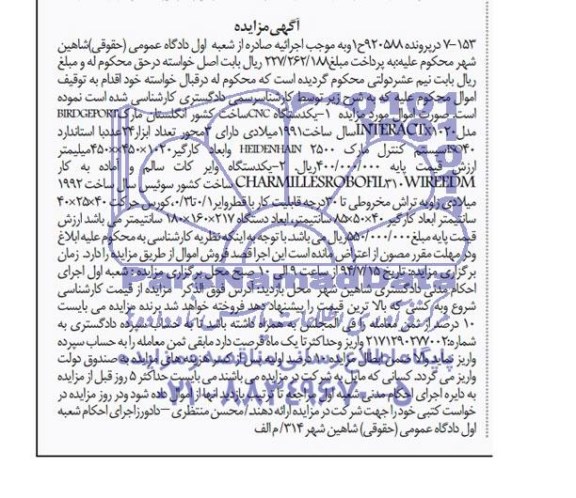 آگهی مزایده
۷-۱۵۳ درپرونده ۹۲۰۵۸۸ح۱ وبه موجب اجرائیه صادره از شعبه اول دادگاه عمومی (حقوقی)شاهین
شهر محکوم علیه:به پرداخت مبلغ۲۲۷/۲۶۲/۱۸۸ ریال بابت اصل خواسته درحق محکوم له و مبلغ
ریال بابت نیم عشردولتی محکوم گردیده است که محکوم له درقبال خواسته خود اقدام به توقیف
اموال محکوم علیه که به شرح زیر توسط کارشناسرسمی دادگستری کارشناسی شده است نموده
است.صورت اموال مورد مزایده ۱-یکدستگاه CNCساخت کشور انگلستان مارک BIRDGEPORT
مدل INTERACTX۱۰۲۰سال ساخت۱۹۹۱میلادی دارای ۳محور تعداد ابزار۲۴عددبا استاندارد
ISO۴۰سیستم کنترل مارک HEIDENHAIN ۲۵۰۰ وابعاد کارگیر۱۰۲۰×۴۵۰×۴۵۰میلیمتر
ارزش قیمت پایه ۴۰۰/۰۰۰/۰۰۰ریال. ۲-یکدستگاه وایر کات سالم و آماده به کار
CHARMILLESROBOFIL۳۱۰.WIREEDMساخت کشور سوئیس سال ساخت ۱۹۹۲
میلادی زاویه تراش مخروطی تا ۳۰درجه قابلیت کار با قطروایر۰/۱تا۰/۳،کورس حرکت ۴۰×۲۵×۴۰
سانتیمتر ابعاد کارگیر ۴۰×۵۰×۸۵سانتیمتر، ابعاد دستگاه ۲۱۷×۱۶۰×۱۸۰ سانتیمتر می باشد ارزش
قیمت پایه مبلغ۵۵۰/۰۰۰/۰۰۰ریال می باشد.با توجه به اینکه نظریه کارشناسی به محکوم علیه ابلاغ
ودر مهلت مقرر مصون از اعتراض مانده است این اجرا قصد فروش اموال از طریق مزایده را دارد. زمان
برگزاری مزایده: تاریخ ۹۴/۷/۱۵ از ساعت ۹ الی ۱۰ صبح محل برگزاری مزایده: شعبه اول اجرای
احکام مدنی دادگستری شاهین شهر محل بازدید آدرس فوق الذکر مزایده از قیمت کارشناسی
شروع وبه کسی که بالا ترین قیمت را پیشنهاد دهد فروخته خواهد شد برنده مزایده می بایست
۱۰ درصد از ثمن معامله را فی المجلس به همراه داشته باشد تا به حساب سپرده دادگستری به
شماره:۲۱۷۱۲۹۰۲۷۷۰۰۲ واریز وحداکثر تا یک ماه فرصت دارد مابقی ثمن معامله را به حساب سپرده
واریز نماید والا ضمن ابطال مزایده ۱۰ درصد اولیه پس از کسر هزینه های مزایده به صندوق دولت
واریز می گردد. کسانی که مایل به شرکت در مزایده می باشند می بایست حداکثر ۵ روز قبل از مزایده
به دایره اجرای احکام مدنی شعبه اول مراجعه تا ترتیب بازدید آنها از اموال داده شود ودر روز مزایده در
خواست کتبی خود را جهت شرکت در مزایده ارائه دهند/محسن منتظری-دادورزاجرای احکام شعبه
اول دادگاه عمومی (حقوقی) شاهین شهر ۳۱۴/م الف
۰۲۱-۸۸۳۴۹۶۷۰-۵